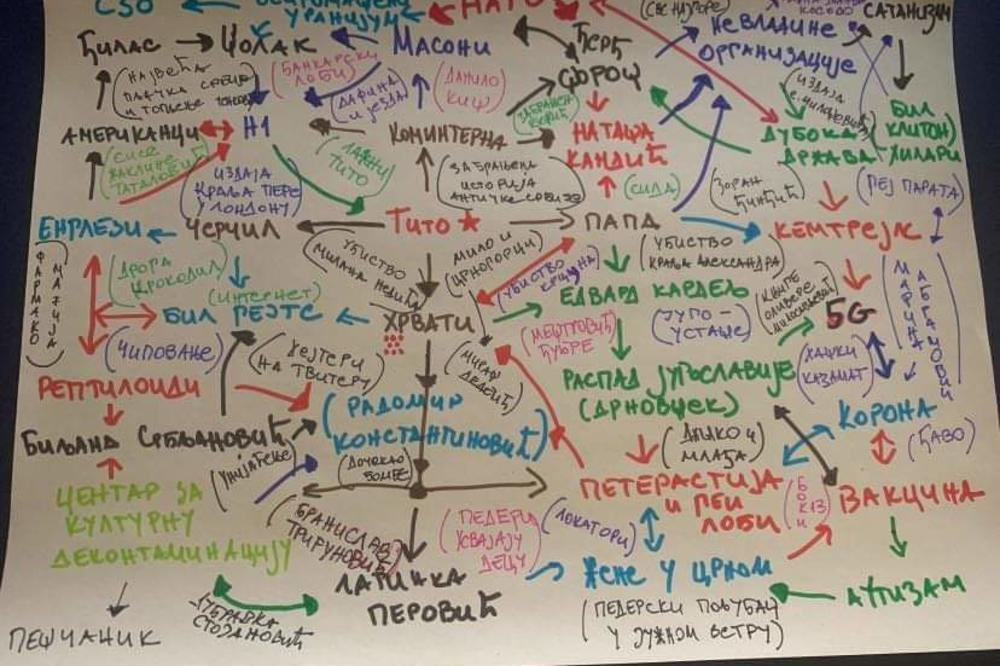 СЗО
УРАНИЈУМ
НАТО
(СВЕ НАЈГОРЕ)
КОСОВО
САТАНИЗАМ
ЂИЛАС
ЏОЛАК
МАСОНИ
ЂЕРЂ
СОРОШ
НЕВЛАДИНЕ
ОРГАНИЗАЦИЈЕ
(НАЈВЕЋА
ПЉАЧКА СРБИЈЕ
И ТОПЉЕЊЕ
(БАНКАРСКИ
ЛОБИ)
(ДАФИНА
И ЈЕЗДА)
(ДАНИЛО
КИШ)
ЗАБРАЊЕН
(ИЗДАЈА
БИЛ
КЛИНТОН
И ХИЛАРИ
АМЕРИКАНЦИ
Н1
КОМИНТЕРНА
НАТАША
КАНДИЋ
ДУБОКА
ДРЖАВА
(СИСЕ
ЖАКЛИНЕ
ТАТАЛОВИЋ)
(ИЗДАЈА
КРАЉА ПЕРЕ
У ЛОНДОНУ)
(ЛАЖНИ
ТИТО)
(ЗАБРАЊЕНА
ИСТОРИЈА
АНТИЧКЕ СРБИЈЕ)
(СИДА)
(ЗОРАН
ЂИНЂИЋ)
(РЕЈ ПАРАТА)
ЕНГЛЕЗИ
ЧЕРЧИЛ
ТИТО
ПАПА
КЕМТРЕЈЛС
(ФАРМАКО
МАФИЈА)
(ДРОГА
КРОКОДИЛ)
(ИНТЕРНЕТ)
(УБИСТВО
МИЛАНА НЕДИЋА)
(МИЛО И
ЦРНОГОРЦИ)
(УБИСТВО
КРЦУНА)
(УБИСТВО
КРАЉА АЛЕКСАНДРА)
ЕДВАРД КАРДЕЉ
(ЈУГО-
УСТАШЕ)
(КЊИГЕ
ОЛИВЕРЕ
5G
МАРИНА
АБРАМОВИЋ
БИЛ ГЕЈТС
ХРВАТИ
(МЕШТРОВИЋ
ЂУБРЕ)
(ЧИПОВАЊЕ)
(ХЕЈТЕРИ
НА ТВИТЕРУ)
(МИРА
ДЕДЕИЋ)
РАСПАД ЈУГОСЛАВИЈЕ
(ДРНОВШЕК)
(ХАШКИ
КАЗАМАТ)
РЕПТИЛОИДИ
(РАДОМИР
КОНСТАНТИНОВИЋ)
КОРОНА
БИЉАНА СРБЉАНОВИЋ
(УНИЈАЋЕЊЕ)
(ДОЧЕКАО
БОМБЕ)
(ДАЧКО И
МЛАЂА)
(ЂАВО)
ЦЕНТАР ЗА
КУЛТУРНУ
ДЕКОНТАМИНАЦИЈУ
(БРАНИСЛАВ
ТРИФУНОВИЋ)
(ПЕДЕРИ
УСВАЈАЈУ
ДЕЦУ)
(ЛОКАТОРИ)
ПЕТЕРАСТИЈА
И ГЕИ
ЛОБИ
ВАКЦИНА
ПЕШЧАНИК
ДУБРАВКА
СТОЈАНОВИЋ
ЛАТИНКА
ПЕРОВИЋ
ЖЕНЕ У ЦРНОМ
АУТИЗАМ
(ПЕДЕРСКИ ПОЉУБАЦ
У ЈУЖНОМ ВЕТРУ)